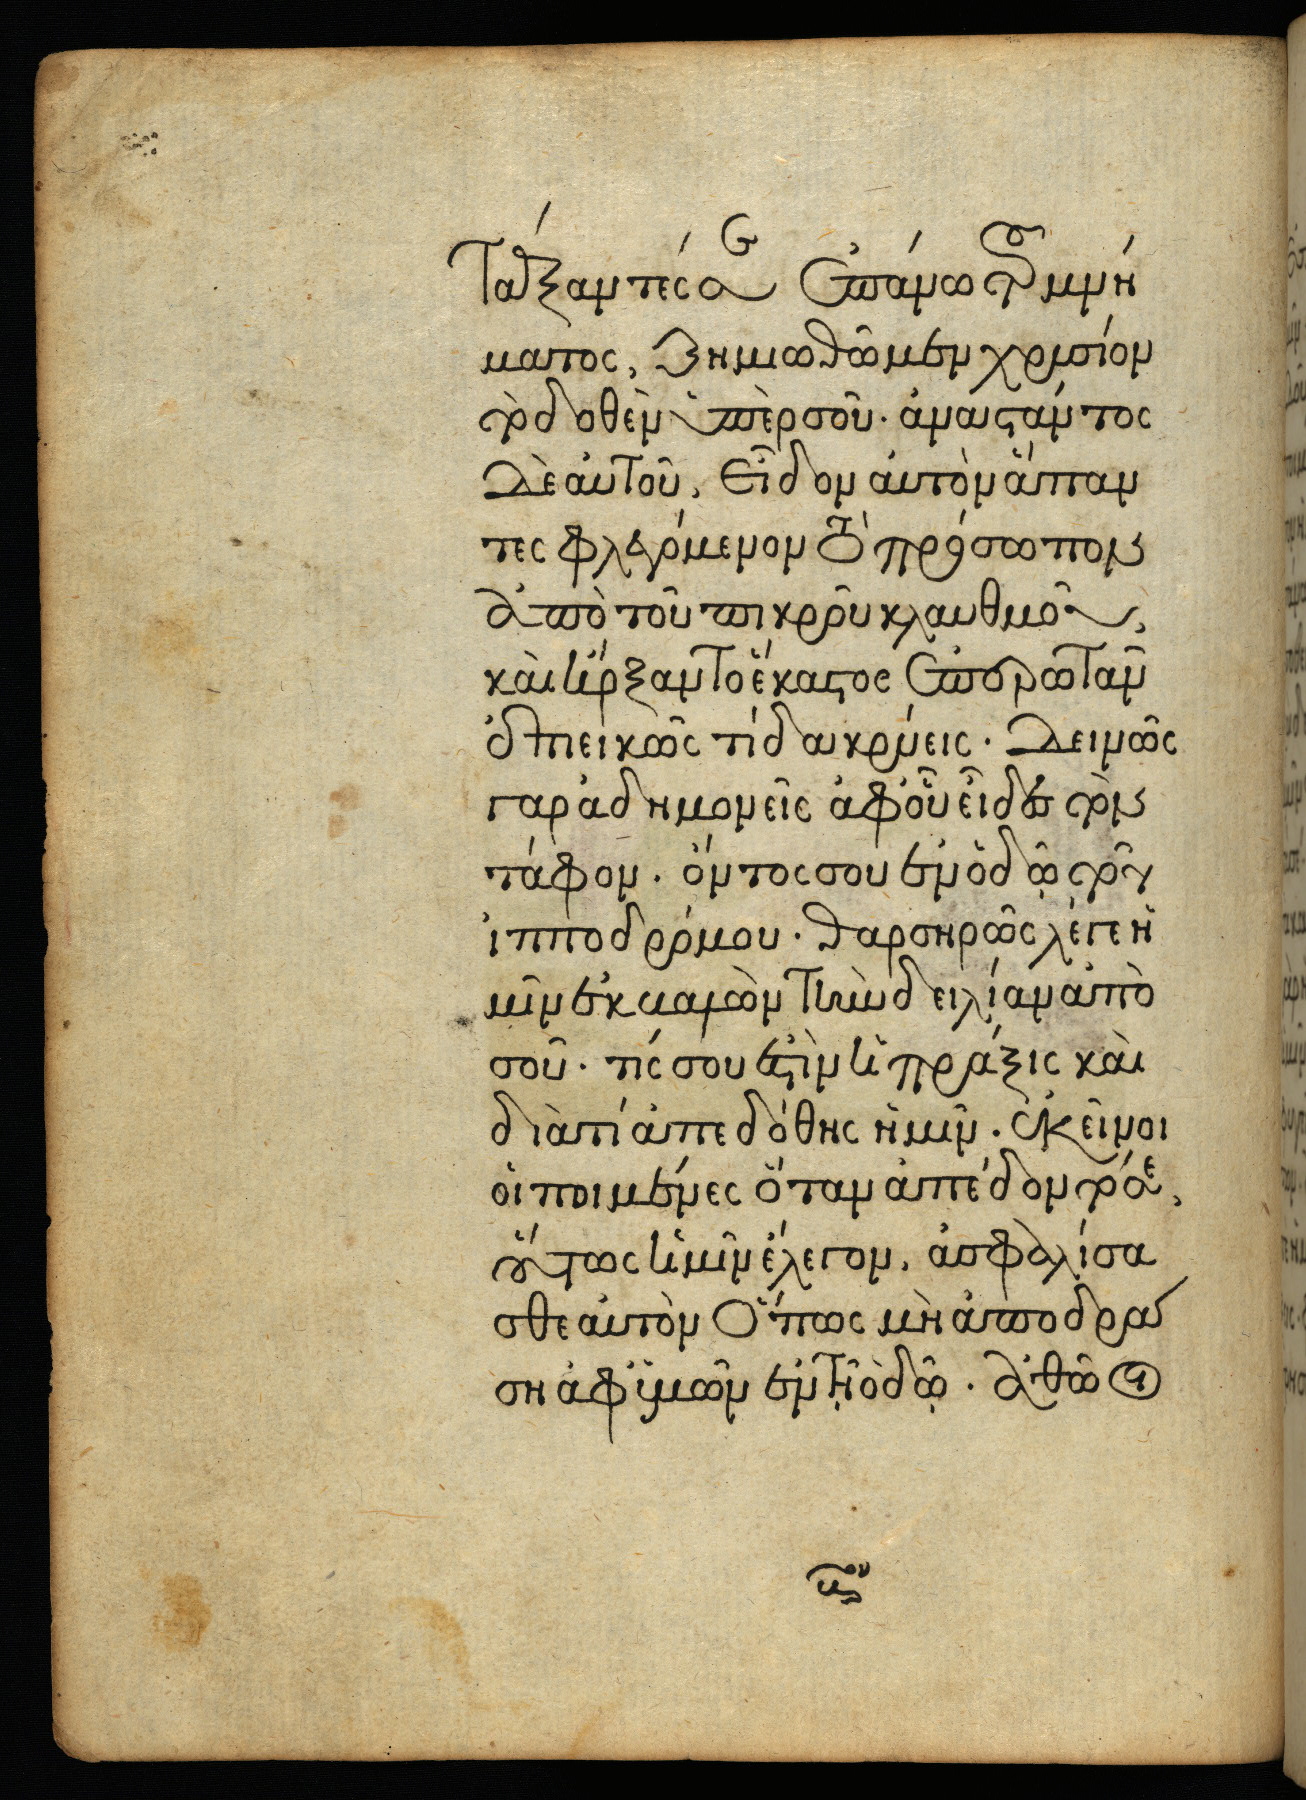 τάξαντές σε ἐπάνω τοῦ μνή
ματος, ζημιωθῶμεν χρυσίον
τὸ δοθὲν ὑπὲρ σοῦ. ἀναστάντος
δὲ αὐτοῦ, εἶδον αὐτὸν ἅπαν
τες φλεγόμενον τὸ πρόσωπον
ἀπὸ τοῦ πικροῦ κλαυθμοῦ,
καὶ ἤρξαντο ἕκαστος ἐπερωτᾶν
ἐπιεικῶς τί δακρύεις. δεινῶς
γὰρ ἀδημονεῖς ἀφοῦ εἶδες τὸν
τάφον. ὄντος σου ἐν ὁδῷ τοῦ
ἱπποδρόμου. θαρσηρῶς λέγε ἡ
μῖν ἐκκαμὼν τὴν δειλίαν ἀπὸ
σοῦ. τίς σου ἐστὶν ἡ πρᾶξις καὶ
διὰ τί ἀπεδόθης ἡμῖν. ἐκεῖνοι
οἱ ποιμένες ὅταν ἀπέδοντό σε,
οὕτως ἡμῖν ἔλεγον, ἀσφαλίσα
σθε αὐτὸν ὅπως μὴ ἀποδρά
ση ἀφ' ὑμῶν ἐν τῇ ὁδῷ. ἀθῶοι